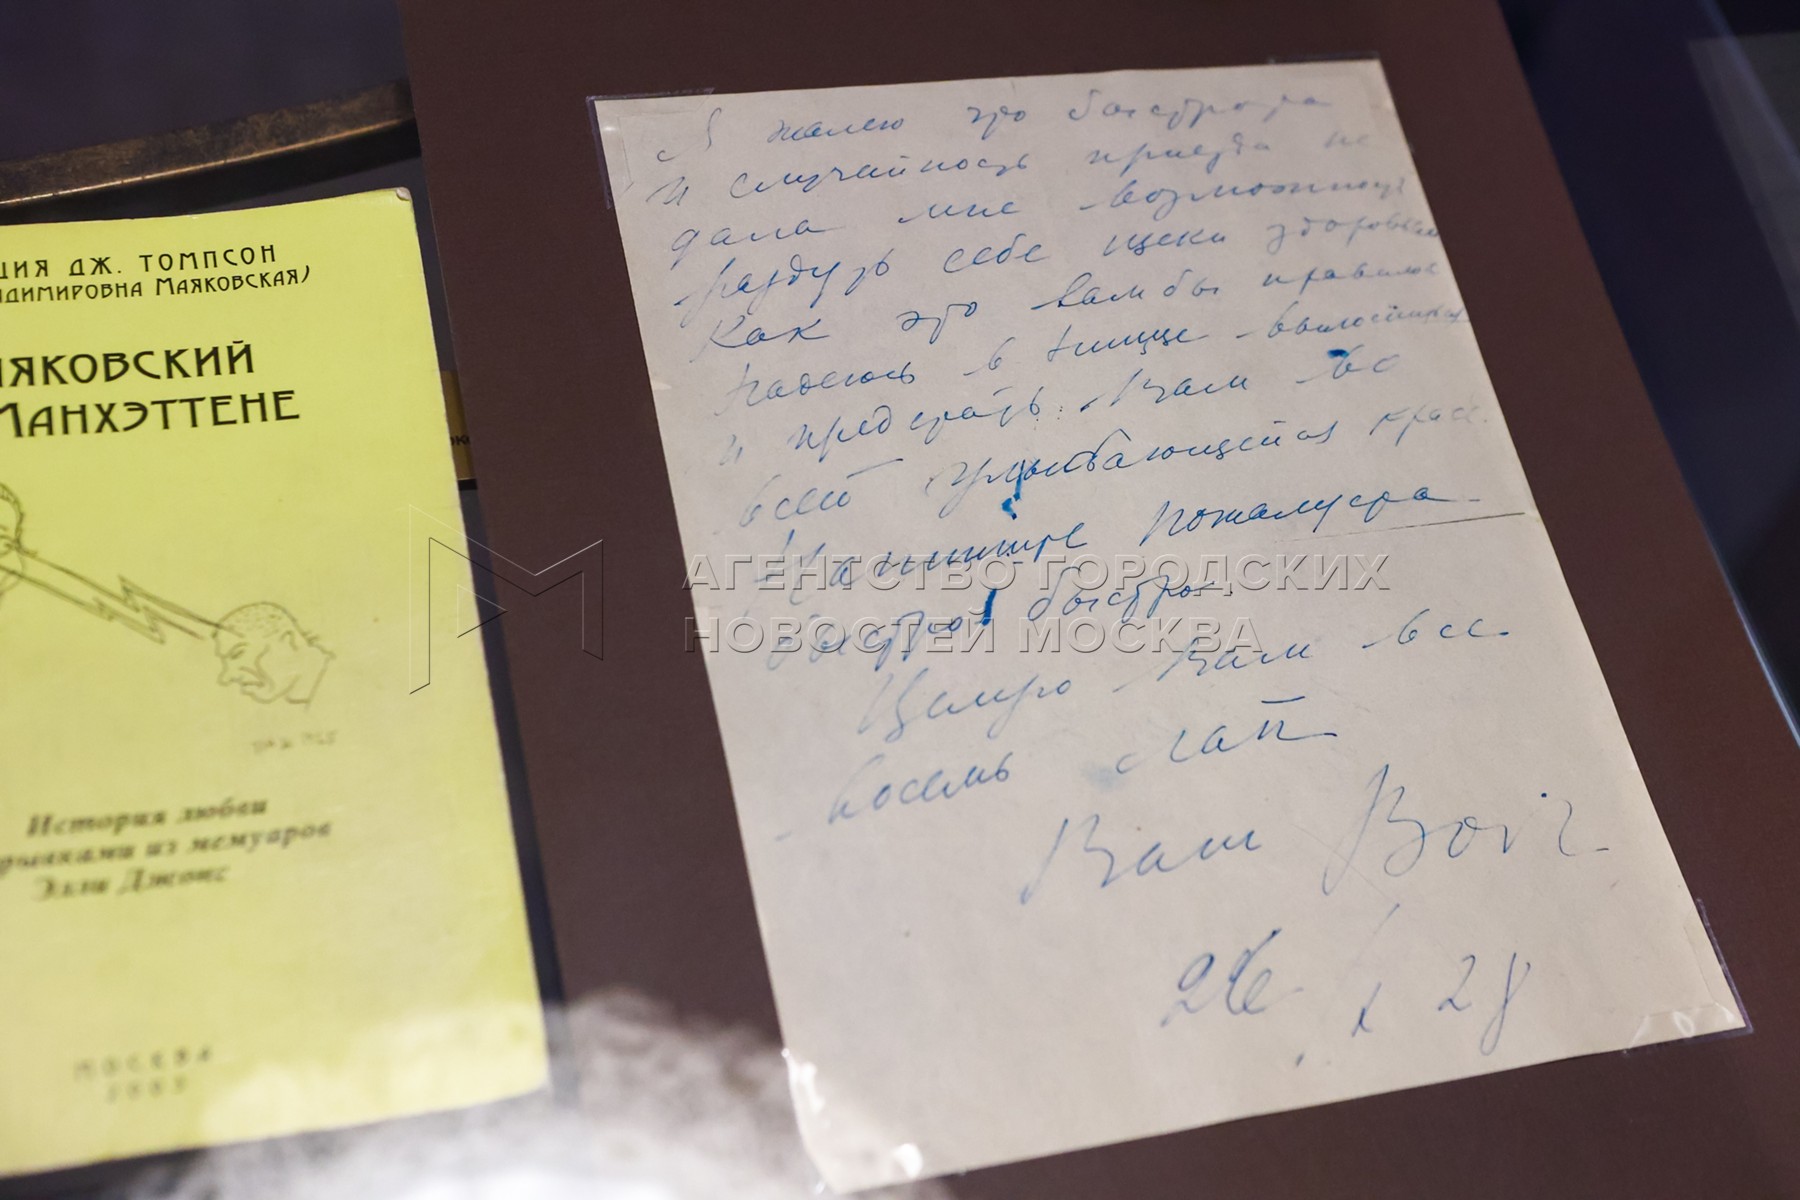 ЦИЯ ДЖ. ТОМПСОН
АДИМИРОВНА МАЯКОВСКАЯ)
МАЯКОВСКИЙ
МАНХЭТТЕНЕ
История любви
из мемуаров
Элли Джонс
МОСКВА
2003
Я жалею что быстрота
и случайность приезда не
дала мне возможность
раздуть себе щеки здоровьем
Как это вам бы нравилось
Надеюсь в Ницце вылосниться
и предстать Вам во
всей улыбающейся красе.
Напишите пожалуйста
быстро быстро.
Целую Вам все
восемь лап
Ваш Вол.
26 X 28
АГЕНТСТВО ГОРОДСКИХ
НОВОСТЕЙ МОСКВА